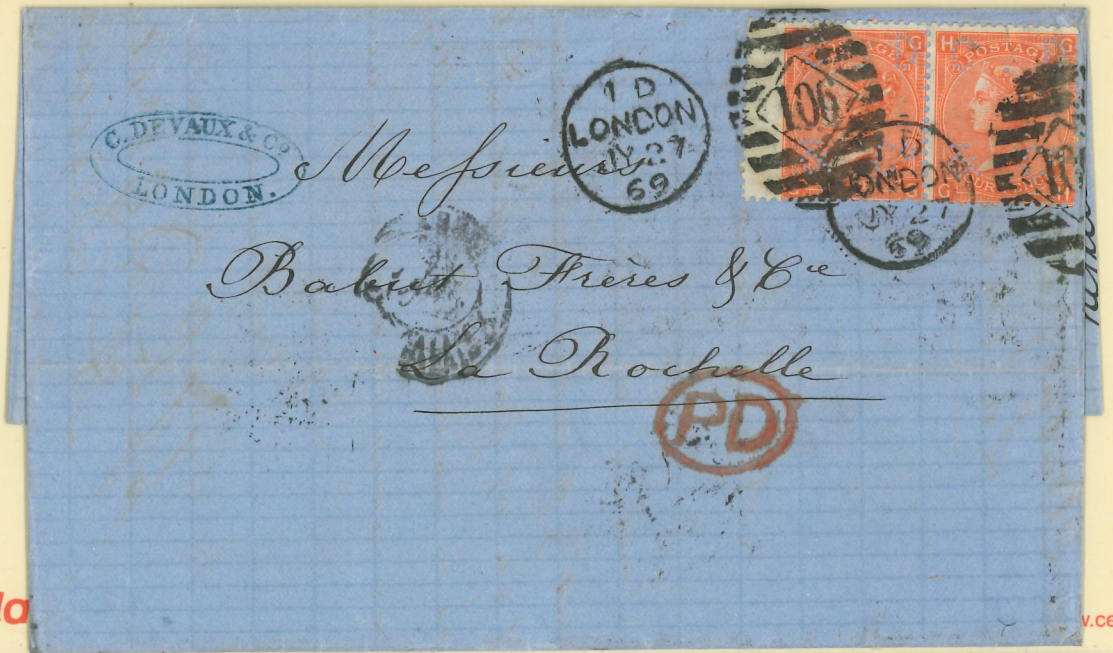 C. DEVAUX & Co
LONDON.
1 D
LONDON
JY 27
69
106
G
H G
POSTAGE
1 D
LONDON
JY 27
69
G
Messieurs
Babut Frères & Cie
La Rochelle
PD